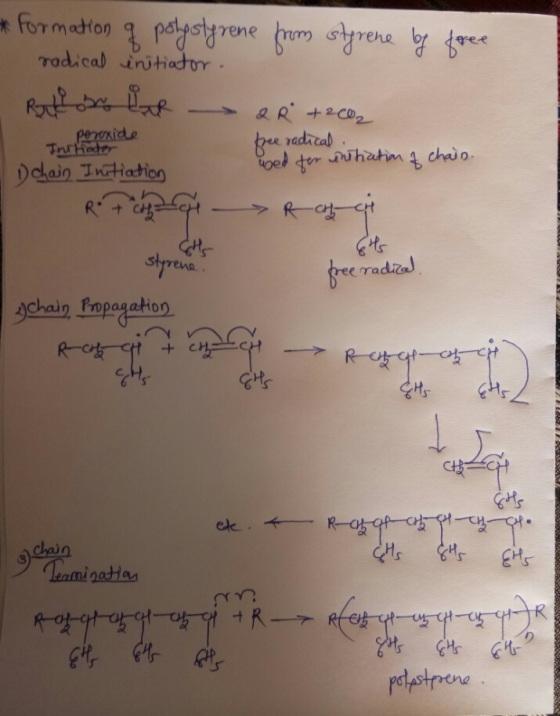 * Formation of polystyrene from styrene by free
radical initiator.
R-C-O-O-C-R → 2 R• + 2CO2
O O
peroxide
Initiator
free radical.
used for initiation of chain.
1) Chain Initiation
R• + CH2=CH → R-CH2-CH•
C6H5 C6H5
styrene. free radical.
2) Chain Propagation
R-CH2-CH• + CH2=CH → R-CH2-CH-CH2-CH•
C6H5 C6H5 C6H5 C6H5
↓
CH2=CH
C6H5
etc. ← R-CH2-CH-CH2-CH-CH2-CH•
C6H5 C6H5 C6H5
3) Chain
Termination
R-CH2-CH-CH2-CH-CH2-CH• + •R → R(CH2-CH-CH2-CH-CH2-CH)n R
C6H5 C6H5 C6H5 C6H5 C6H5 C6H5
polystyrene.